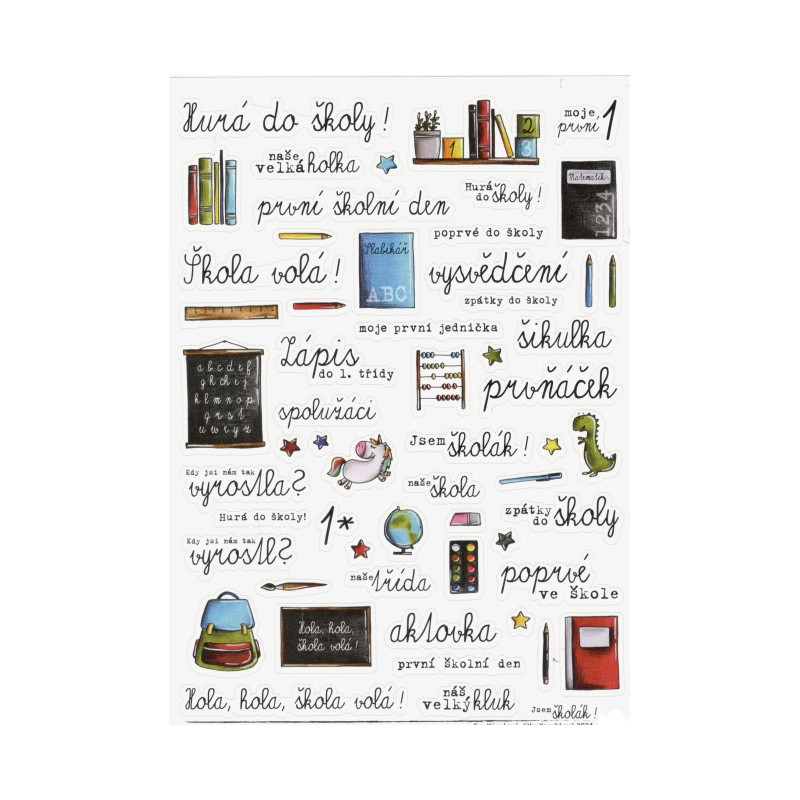 Hurá do školy!
1
2
3
moje
první 1
naše
velká holka
Matematika
1234
první školní den
Hurá
do školy!
poprvé do školy
Slabikář
ABC
Škola volá!
vysvědčení
zpátky do školy
moje první jednička
šikulka
Zápis
do 1. třídy
a b c d e f
g h ch i j
k l m n o p
q r s t
u w y z
prvňáček
spolužáci
Jsem školák!
Kdy jsi nám tak
vyrostla?
naše škola
Hurá do školy!
1*
zpátky
do školy
Kdy jsi nám tak
vyrostl?
naše třída
poprvé
ve škole
Hola, hola,
škola volá!
aktovka
první školní den
Hola, hola, škola volá!
náš
velký kluk
Jsem školák!